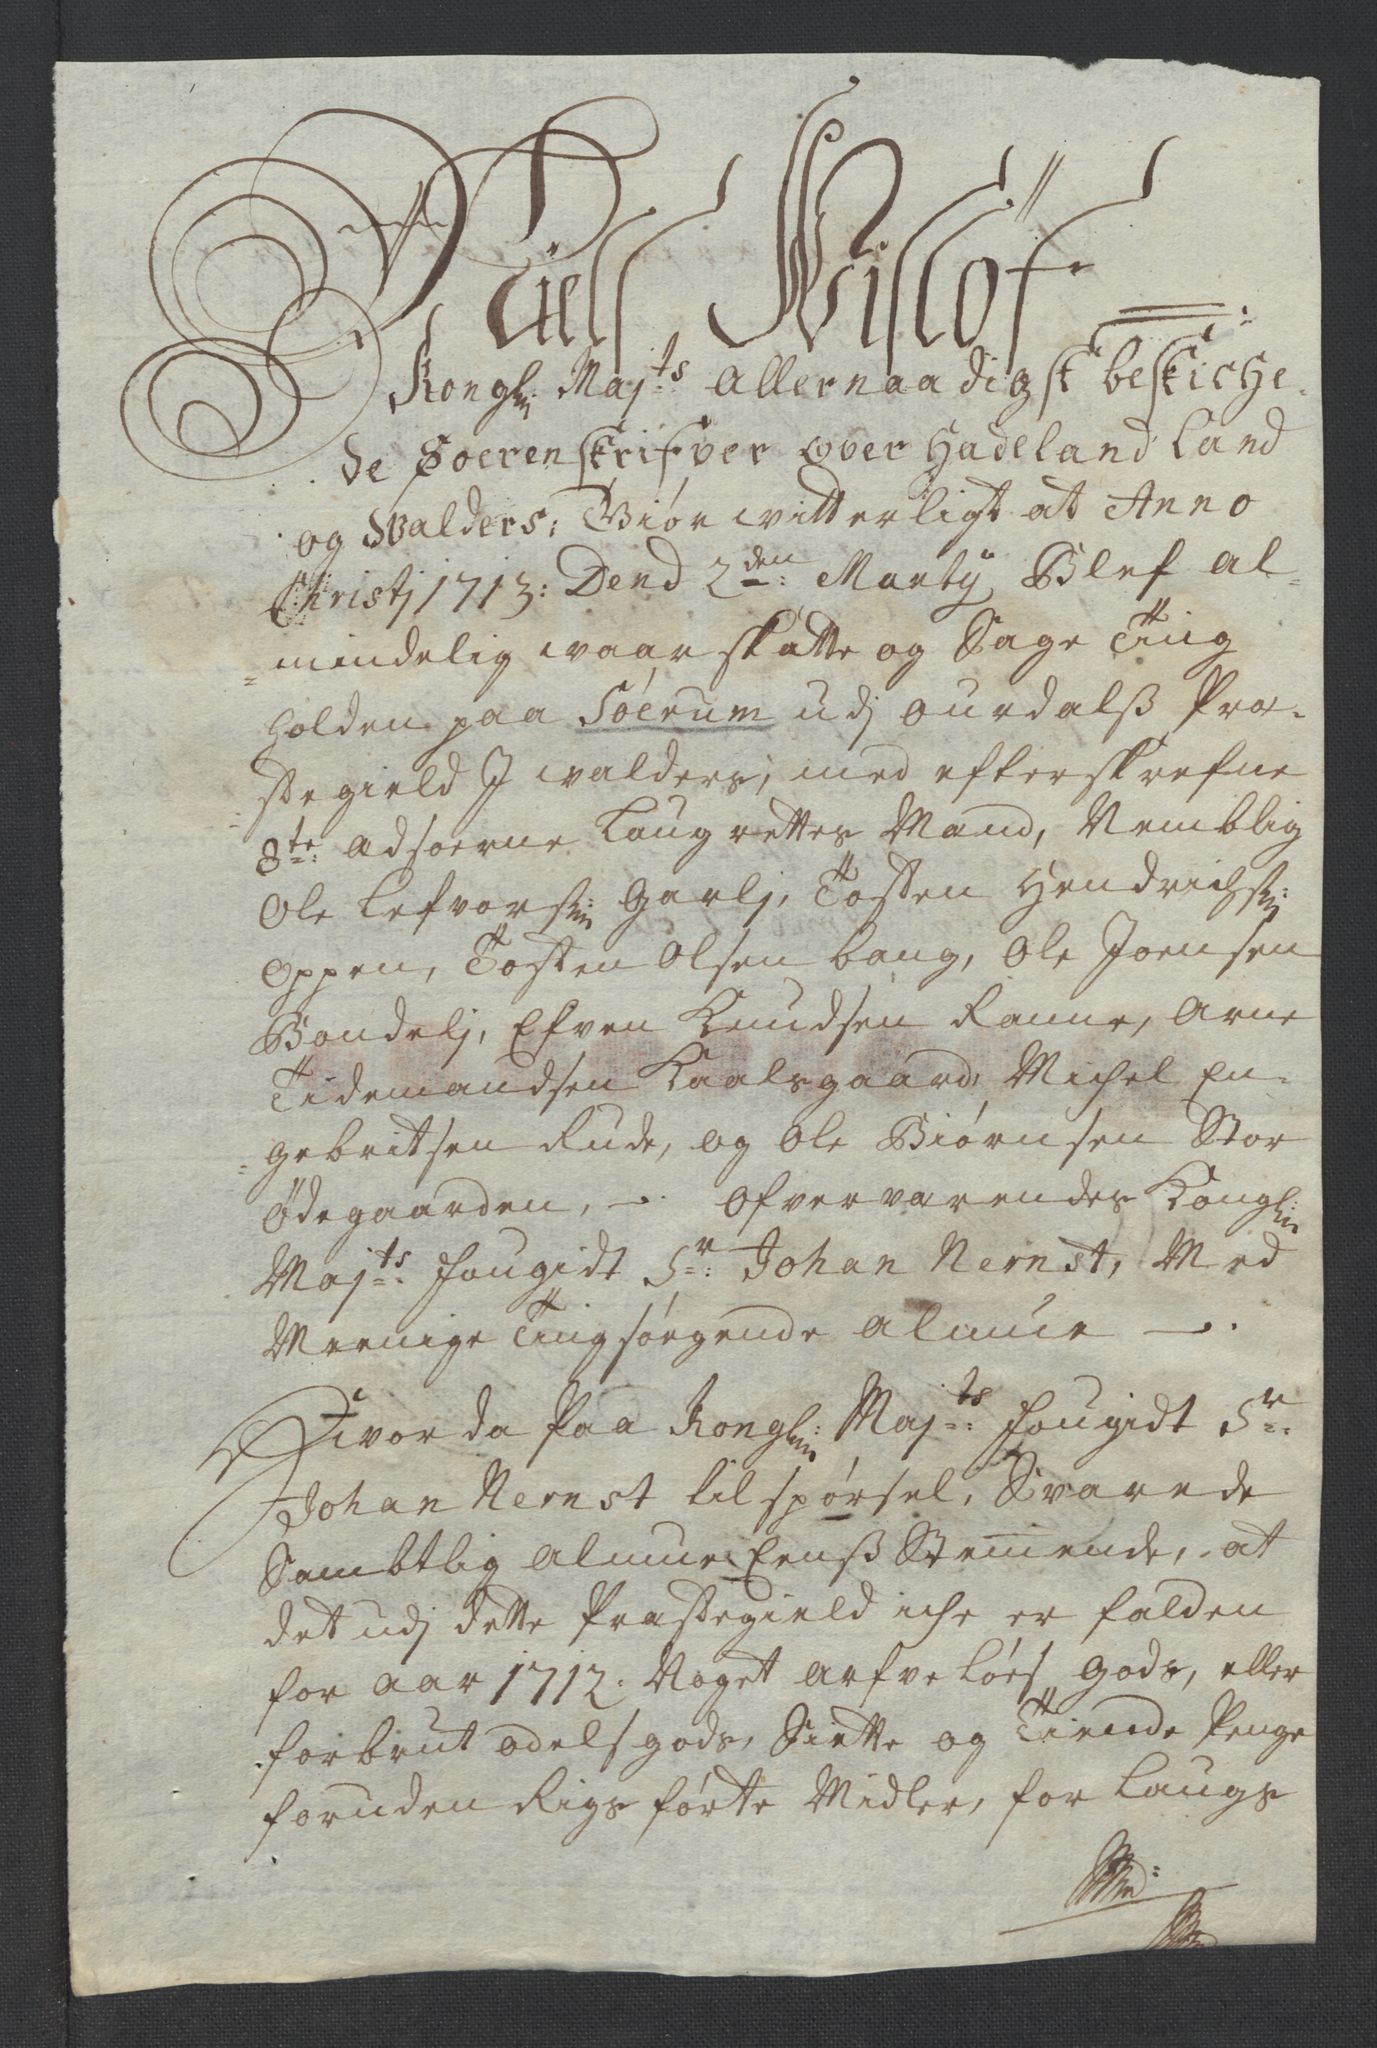 Niels Wislöf
Kongl: Maj:ts allernaadigst beskiche-
de Soerenskrifver over Hadeland Land
og Walders: Giør witterligt at Anno
Christj 1713: Dend 2den: Martij Blef al-
mindelig waar skatte og Sage Ting
holden paa Søerum udj ourdalß Præ-
stegield J walders, med efterskrefne
8te: adsoerne Laugrettes Mand, Nemblig
Ole Lefvorsen Garlj, Tosten Hendrichsen:
Oppen, Tosten Olsen bang, Ole Joensen
Bondelj, Efven Knudsen Ranne, Arne
Tidemandsen Kaalsgaard, Michel En-
gebritsen Rude, og Ole Biørnsen Stor
Ødegaarden, -. Ofververendes Kongl:
Maj:ts fougidt Sr: Johan Nernst, Med
Meenige Tingsøegende almue -.
Hvor da Paa Kongl: Maj:ts fougidt Sr:
Johan Nernst tilspørsel, Svarede
Sambtlig almue Eenß Stemmende, at
det udj dette Præstegield iche er falden
for aar 1712: Noget arfveløes gods, eller
forbrut odelsgods, Siette og Tiende Penge
foruden Rigs førte Midler, for Laugs